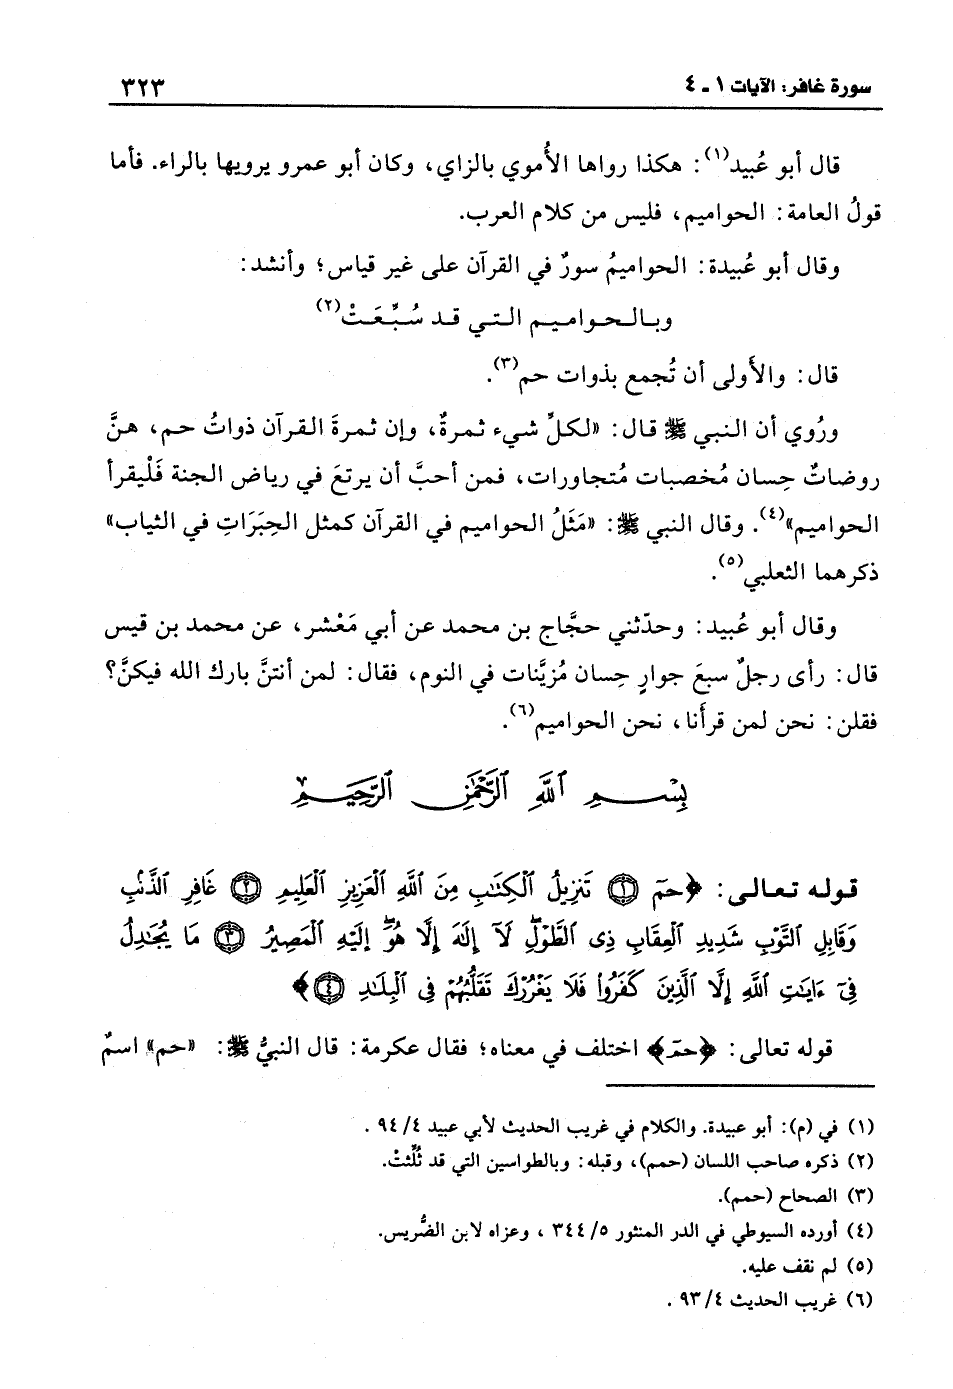 سورة غافر: الآيات ١ ـ ٤ ٣٢٣
قال أبو عُبيد(١): هكذا رواها الأُموي بالزاي، وكان أبو عمرو يرويها بالراء. فأما
قولُ العامة: الحواميم، فليس من كلام العرب.
وقال أبو عُبيدة: الحواميمُ سورٌ في القرآن على غير قياس؛ وأنشد:
وبـالـحـوامـيـم الـتـي قـد سُـبِّـعَـتْ(٢)
قال: والأَولى أن تُجمع بذوات حم(٣).
ورُوي أن النبي ﷺ قال: «لكلِّ شيء ثمرةٌ، وإن ثمرةَ القرآن ذواتُ حم، هنَّ
روضاتٌ حِسان مُخصبات مُتجاورات، فمن أحبَّ أن يرتعَ في رياض الجنة فَلْيقرأ
الحواميم»(٤). وقال النبي ﷺ: «مَثَلُ الحواميم في القرآن كمثل الحِبَرَاتِ في الثياب»
ذكرهما الثعلبي(٥).
وقال أبو عُبيد: وحدّثني حجَّاج بن محمد عن أبي مَعْشر، عن محمد بن قيس
قال: رأى رجلٌ سبعَ جوارٍ حِسان مُزيَّنات في النوم، فقال: لمن أنتنَّ بارك الله فيكنَّ؟
فقلن: نحن لمن قرأَنا، نحن الحواميم(٦).
بِسْمِ ٱللَّهِ ٱلرَّحْمَٰنِ ٱلرَّحِيمِ
قوله تعالى: ﴿حمٓ ١ تَنزِيلُ ٱلْكِتَٰبِ مِنَ ٱللَّهِ ٱلْعَزِيزِ ٱلْعَلِيمِ ٢ غَافِرِ ٱلذَّنۢبِ
وَقَابِلِ ٱلتَّوْبِ شَدِيدِ ٱلْعِقَابِ ذِى ٱلطَّوْلِۖ لَآ إِلَٰهَ إِلَّا هُوَۖ إِلَيْهِ ٱلْمَصِيرُ ٣ مَا يُجَٰدِلُ
فِىٓ ءَايَٰتِ ٱللَّهِ إِلَّا ٱلَّذِينَ كَفَرُوا۟ فَلَا يَغْرُرْكَ تَقَلُّبُهُمْ فِى ٱلْبِلَٰدِ ٤﴾
قوله تعالى: ﴿حمٓ﴾ اختلف في معناه؛ فقال عكرمة: قال النبيُّ ﷺ: «حم» اسمٌ
(١) في (م): أبو عبيدة. والكلام في غريب الحديث لأبي عبيد ٩٤/٤ .
(٢) ذكره صاحب اللسان (حمم)، وقبله: وبالطواسين التي قد ثُلِّثتْ.
(٣) الصحاح (حمم).
(٤) أورده السيوطي في الدر المنثور ٣٤٤/٥ ، وعزاه لابن الضُّريس.
(٥) لم نقف عليه.
(٦) غريب الحديث ٩٣/٤ .